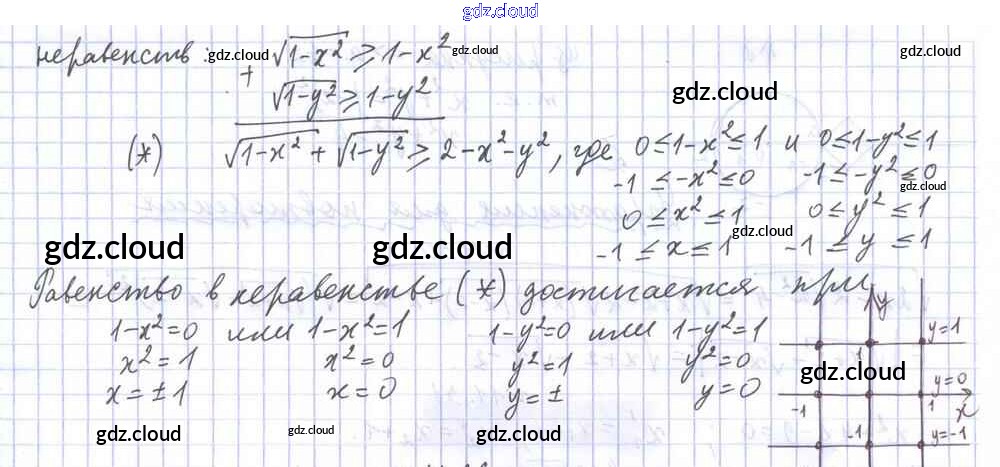 gdz.cloud
неравенств: √1-x² ≥ 1-x² gdz.cloud gdz.cloud
+ √1-y² ≥ 1-y² gdz.cloud
(*) √1-x² + √1-y² ≥ 2-x²-y², где 0≤1-x²≤1 и 0≤1-y²≤1
-1 ≤ -x² ≤ 0 -1 ≤ -y² ≤ 0 gdz.cloud
0 ≤ x² ≤ 1 0 ≤ y² ≤ 1
gdz.cloud gdz.cloud -1 ≤ x ≤ 1 gdz.cloud -1 ≤ y ≤ 1
Равенство в неравенстве (*) достигается при
y
1-x²=0 или 1-x²=1 1-y²=0 или 1-y²=1 y=1
x²=1 x²=0 y²=1 y²=0 1
gdz.cloud y=0
x=±1 x=0 y=± y=0
-1 1 x
gdz.cloud gdz.cloud gdz.cloud -1 y=-1